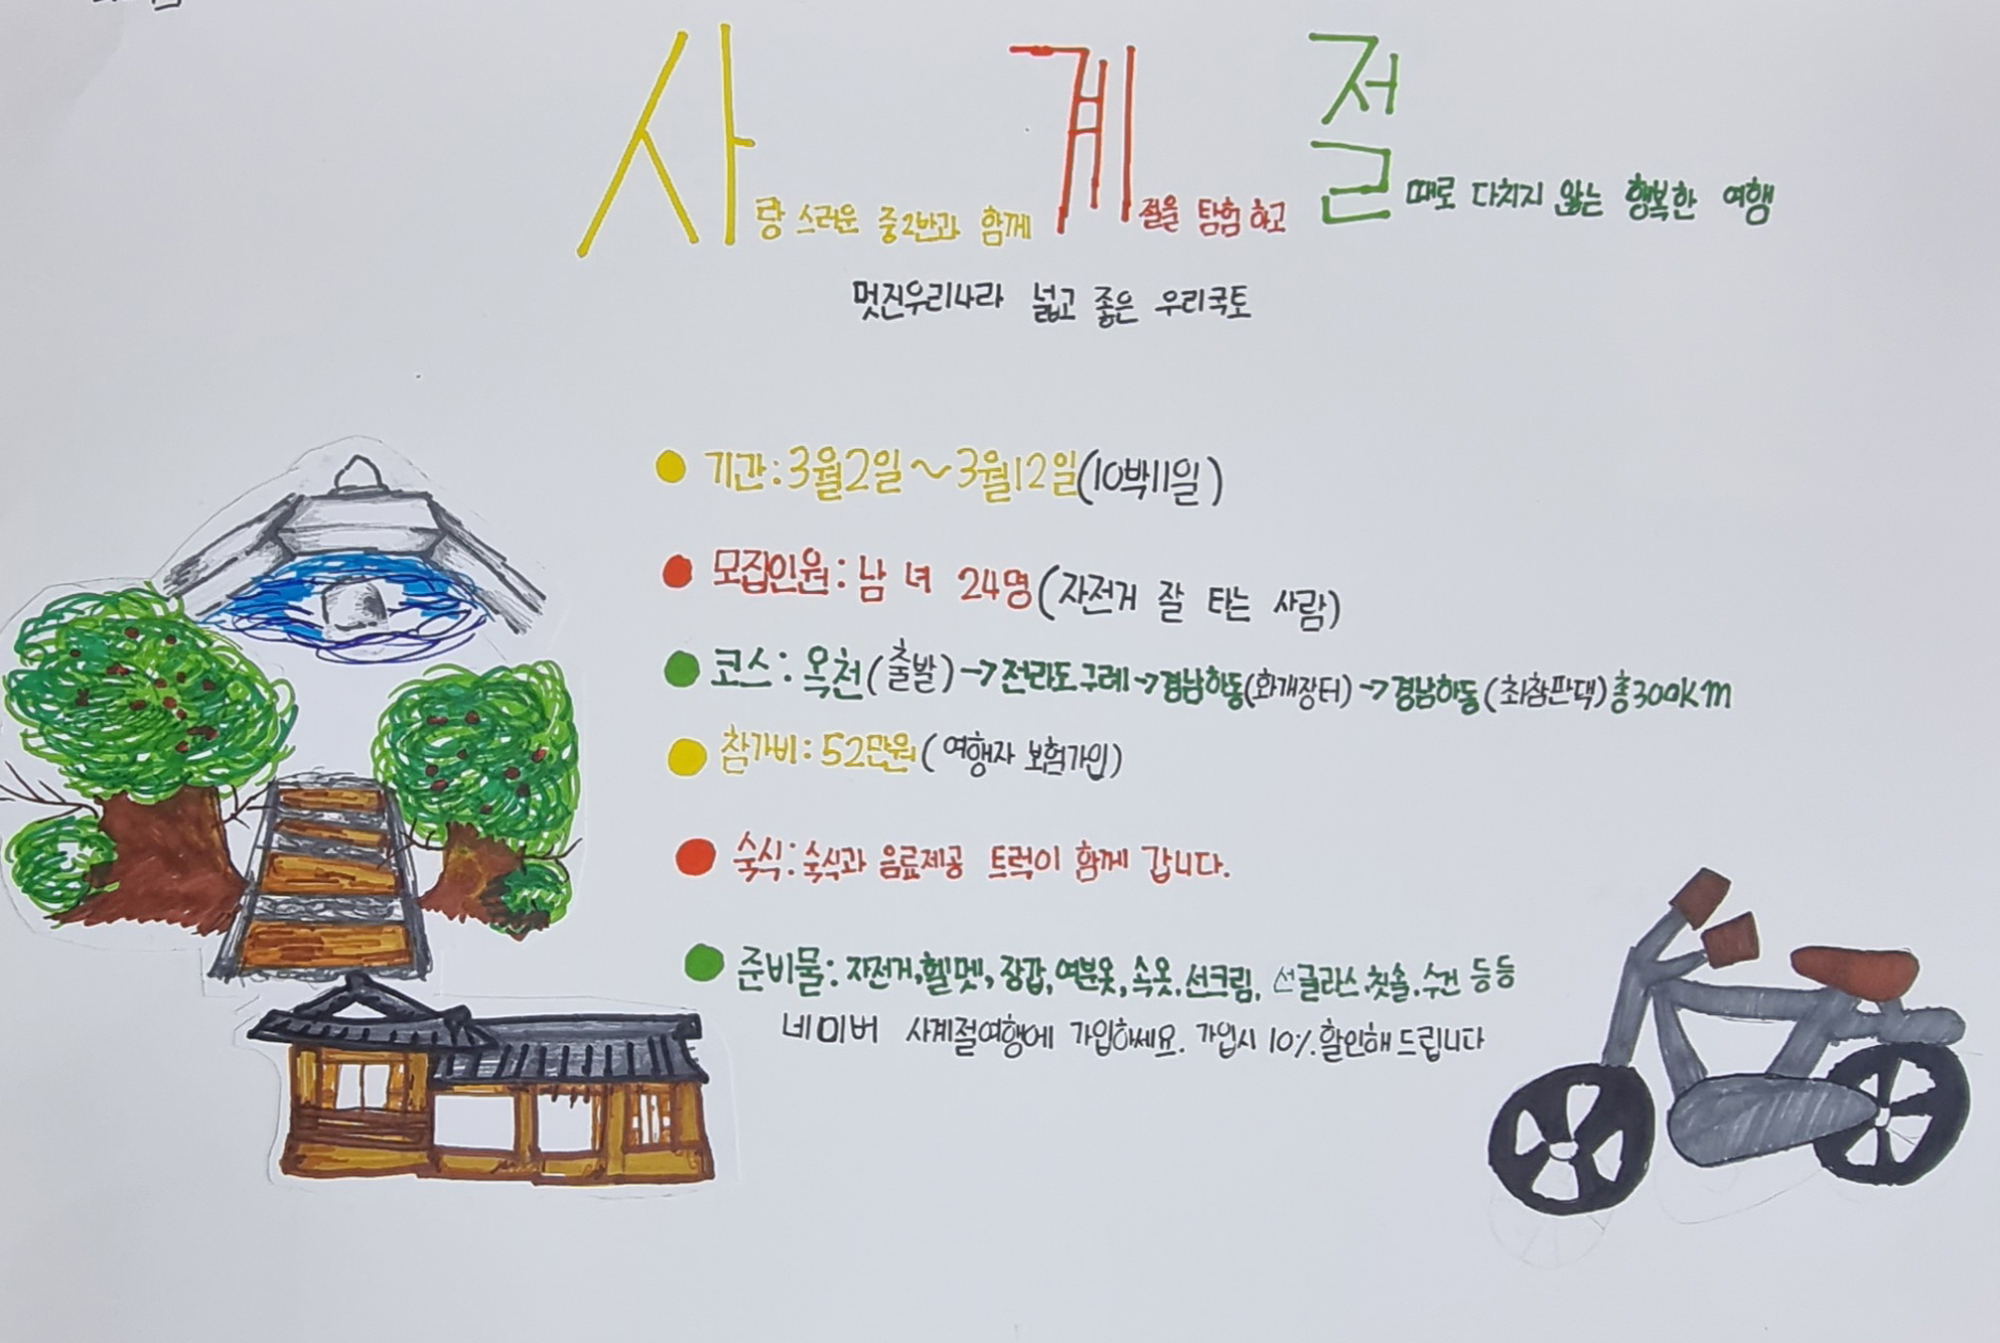 사랑스러운 중2반과 함께 계절을 탐험하고 절때로 다치지 않는 행복한 여행
멋진우리나라 넓고 좋은 우리국토
기간:3월2일~3월12일(10박11일)
모집인원: 남 녀 24명(자전거 잘 타는 사람)
코스: 옥천(출발)->전라도구례->경남하동(화개장터)->경남하동(최참판댁)총300Km
참가비:52만원(여행자 보험가입)
숙식:숙식과 음료제공 트럭이 함께 갑니다.
준비물:자전거,헬멧,장갑,여분옷,속옷,선크림,선글라스.칫솔.수건 등등
네이버 사계절여행에 가입하세요. 가입시 10%할인해드립니다